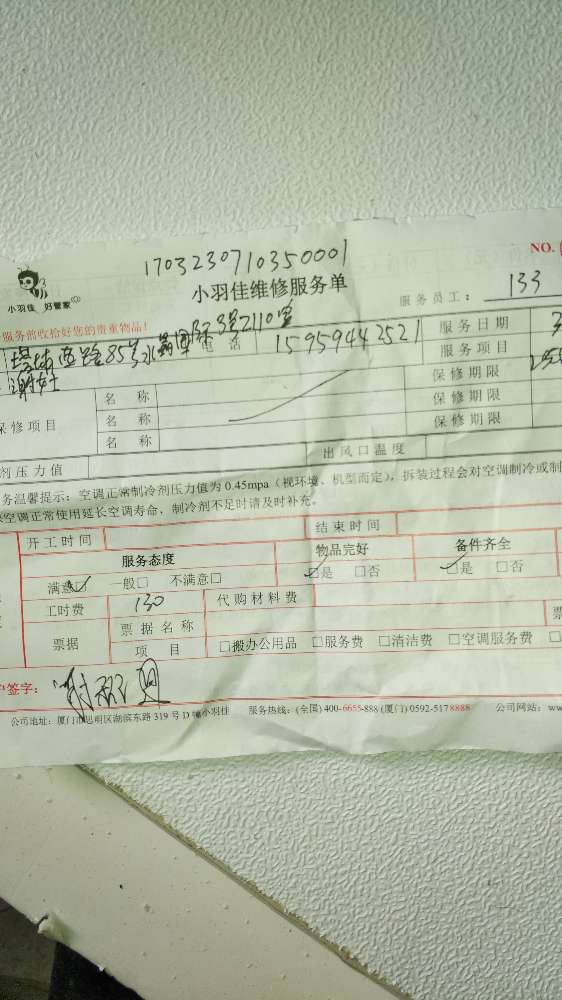 1703230710350001
NO.
小羽佳 好管家
小羽佳维修服务单
服务员工： 133
服务前收拾好您的贵重物品！
85号水晶国际3号2110室 电话 15959442521 服务日期 3
谢女士 服务项目
保修项目 名称 保修期限
名称 保修期限
名称 保修期限
剂压力值 出风口温度
务温馨提示：空调正常制冷剂压力值为 0.45mpa（视环境、机型而定），拆装过程会对空调制冷或制
空调正常使用延长空调寿命，制冷剂不足时请及时补充。
开工时间 结束时间
服务态度 物品完好 备件齐全
满意☑ 一般□ 不满意□ ☑是 □否 ☑是 □否
工时费 130 代购材料费
票据 票据名称 票
项目 □搬办公用品 □服务费 □清洁费 □空调服务费 □
户签字：
公司地址：厦门市思明区湖滨东路 319 号 D 幢小羽佳 服务热线：(全国) 400-6655-888 (厦门) 0592-5178888 公司网站：ww